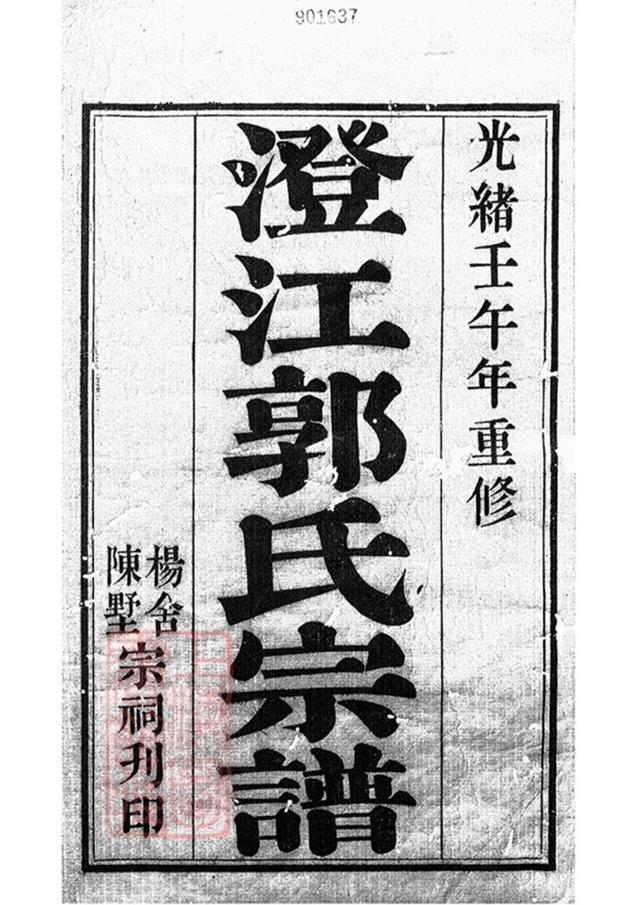 901637
光緒壬午年重修
澄江郭氏宗譜
楊舍
陳墅
宗祠刋印